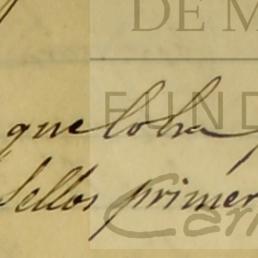 DE M
FUND
que lo ha
sellos primer
Cerr